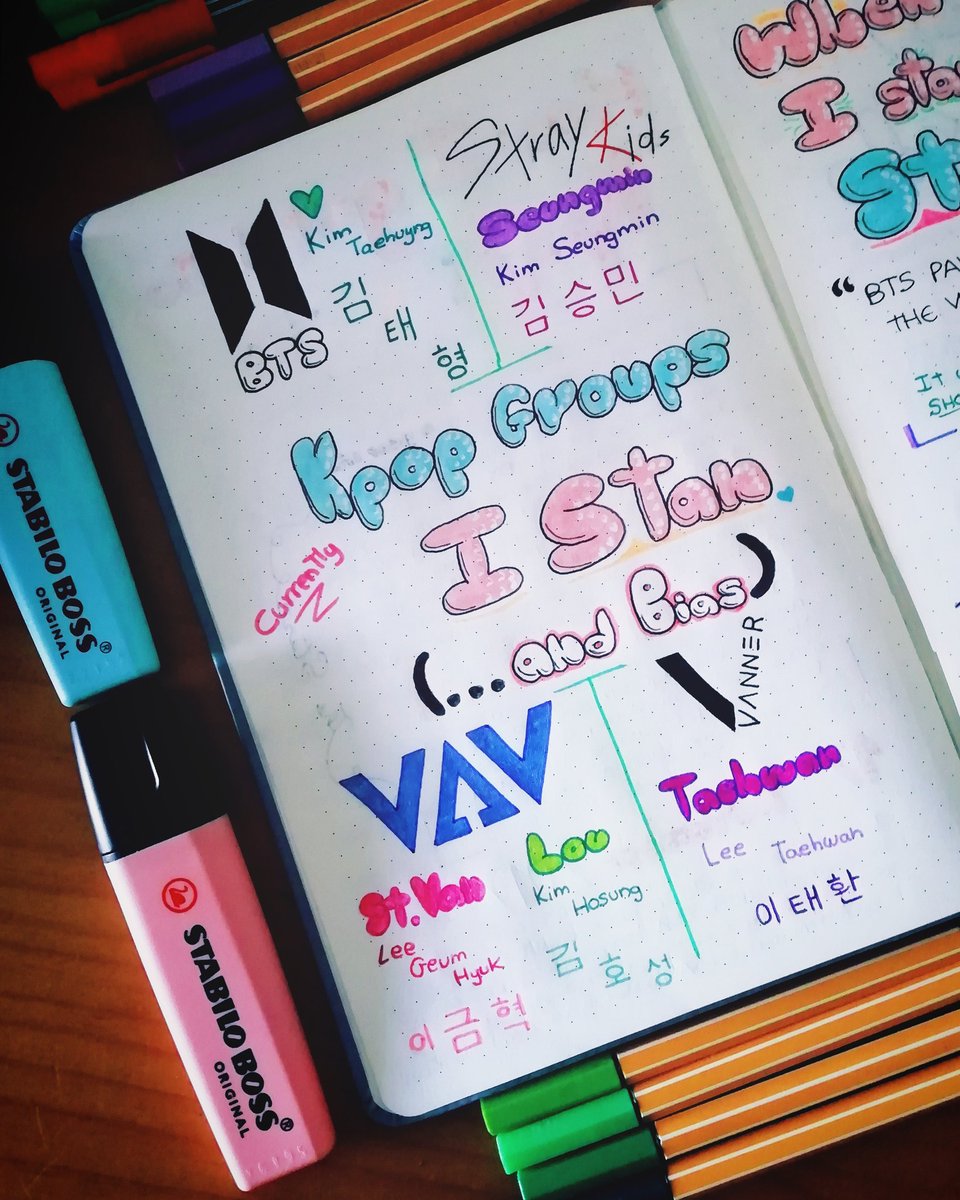 BTS
Kim
Taehuyng
김
태
형
Stray Kids
Seungmin
Kim Seungmin
김승민
Kpop Groups
I Stan
Currently
(...and Bias)
VAV
St.Van
Lee
Geum
Hyuk
이금혁
Lou
Kim
Hosung
김호성
VANNER
Taehwan
Lee Taehwan
이태환
When
I
“BTS
THE
It
STABILO BOSS®
ORIGINAL
STABILO BOSS®
ORIGINAL